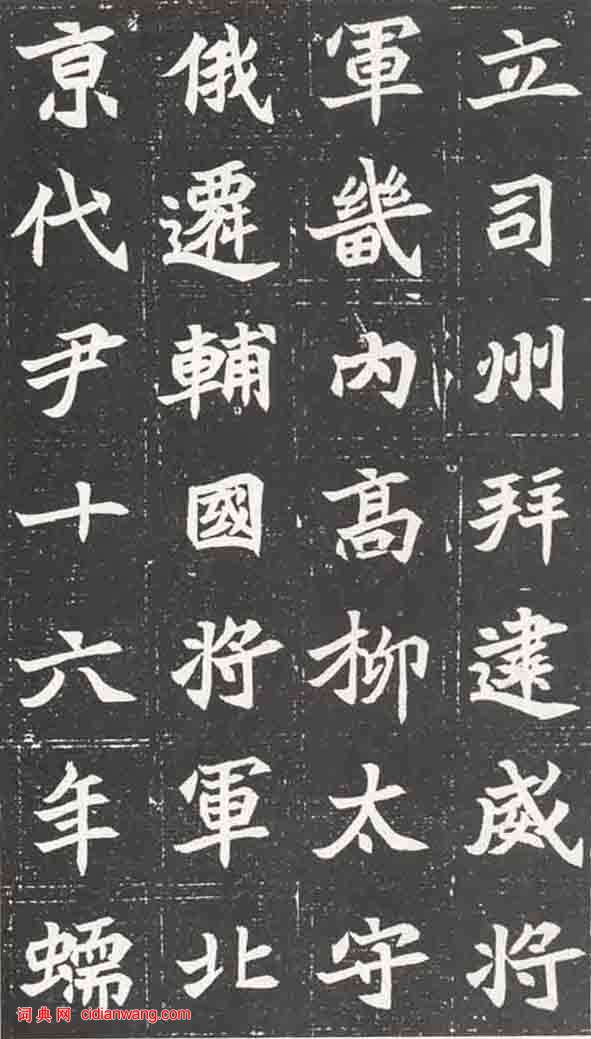 立司州拜建威将
軍畿内高柳太守
俄遷輔國将軍北
京代尹十六年蠕
词典网 cidianwang.com